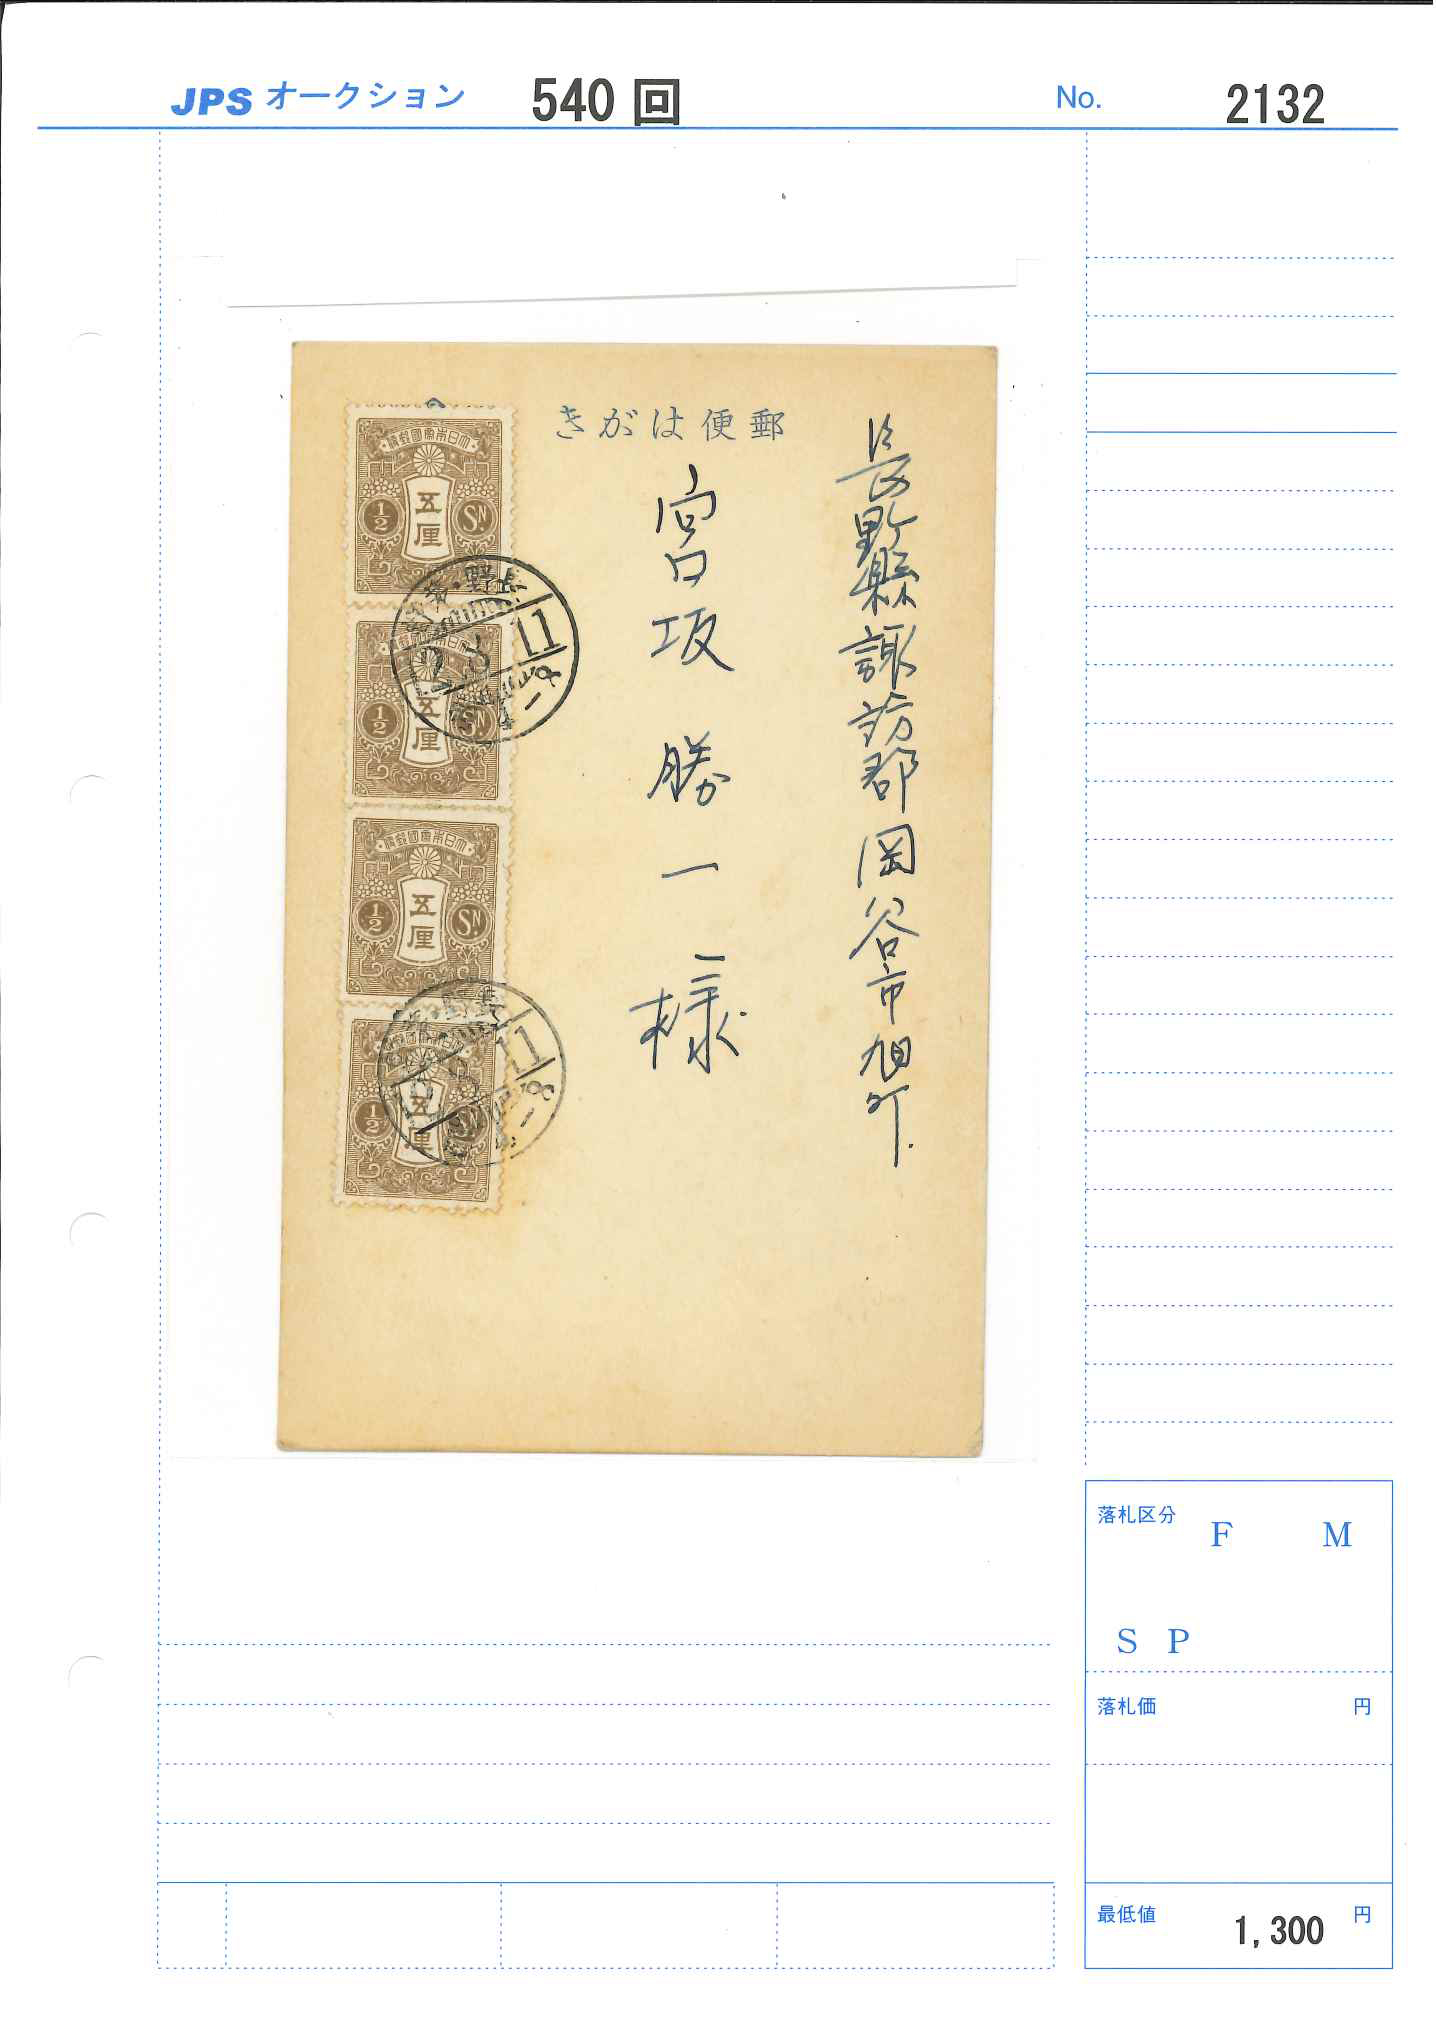 JPS オークション 540 回 No. 2132
きがは便郵
長野縣諏訪郡岡谷市旭町
宮坂勝一様
大日本帝國郵便
五厘
1/2 SN.
大日本帝國郵便
五厘
1/2 SN.
大日本帝國郵便
五厘
1/2 SN.
大日本帝國郵便
五厘
1/2 SN.
長野・
11
11
落札区分 F M
S P
落札価 円
最低値 1,300 円